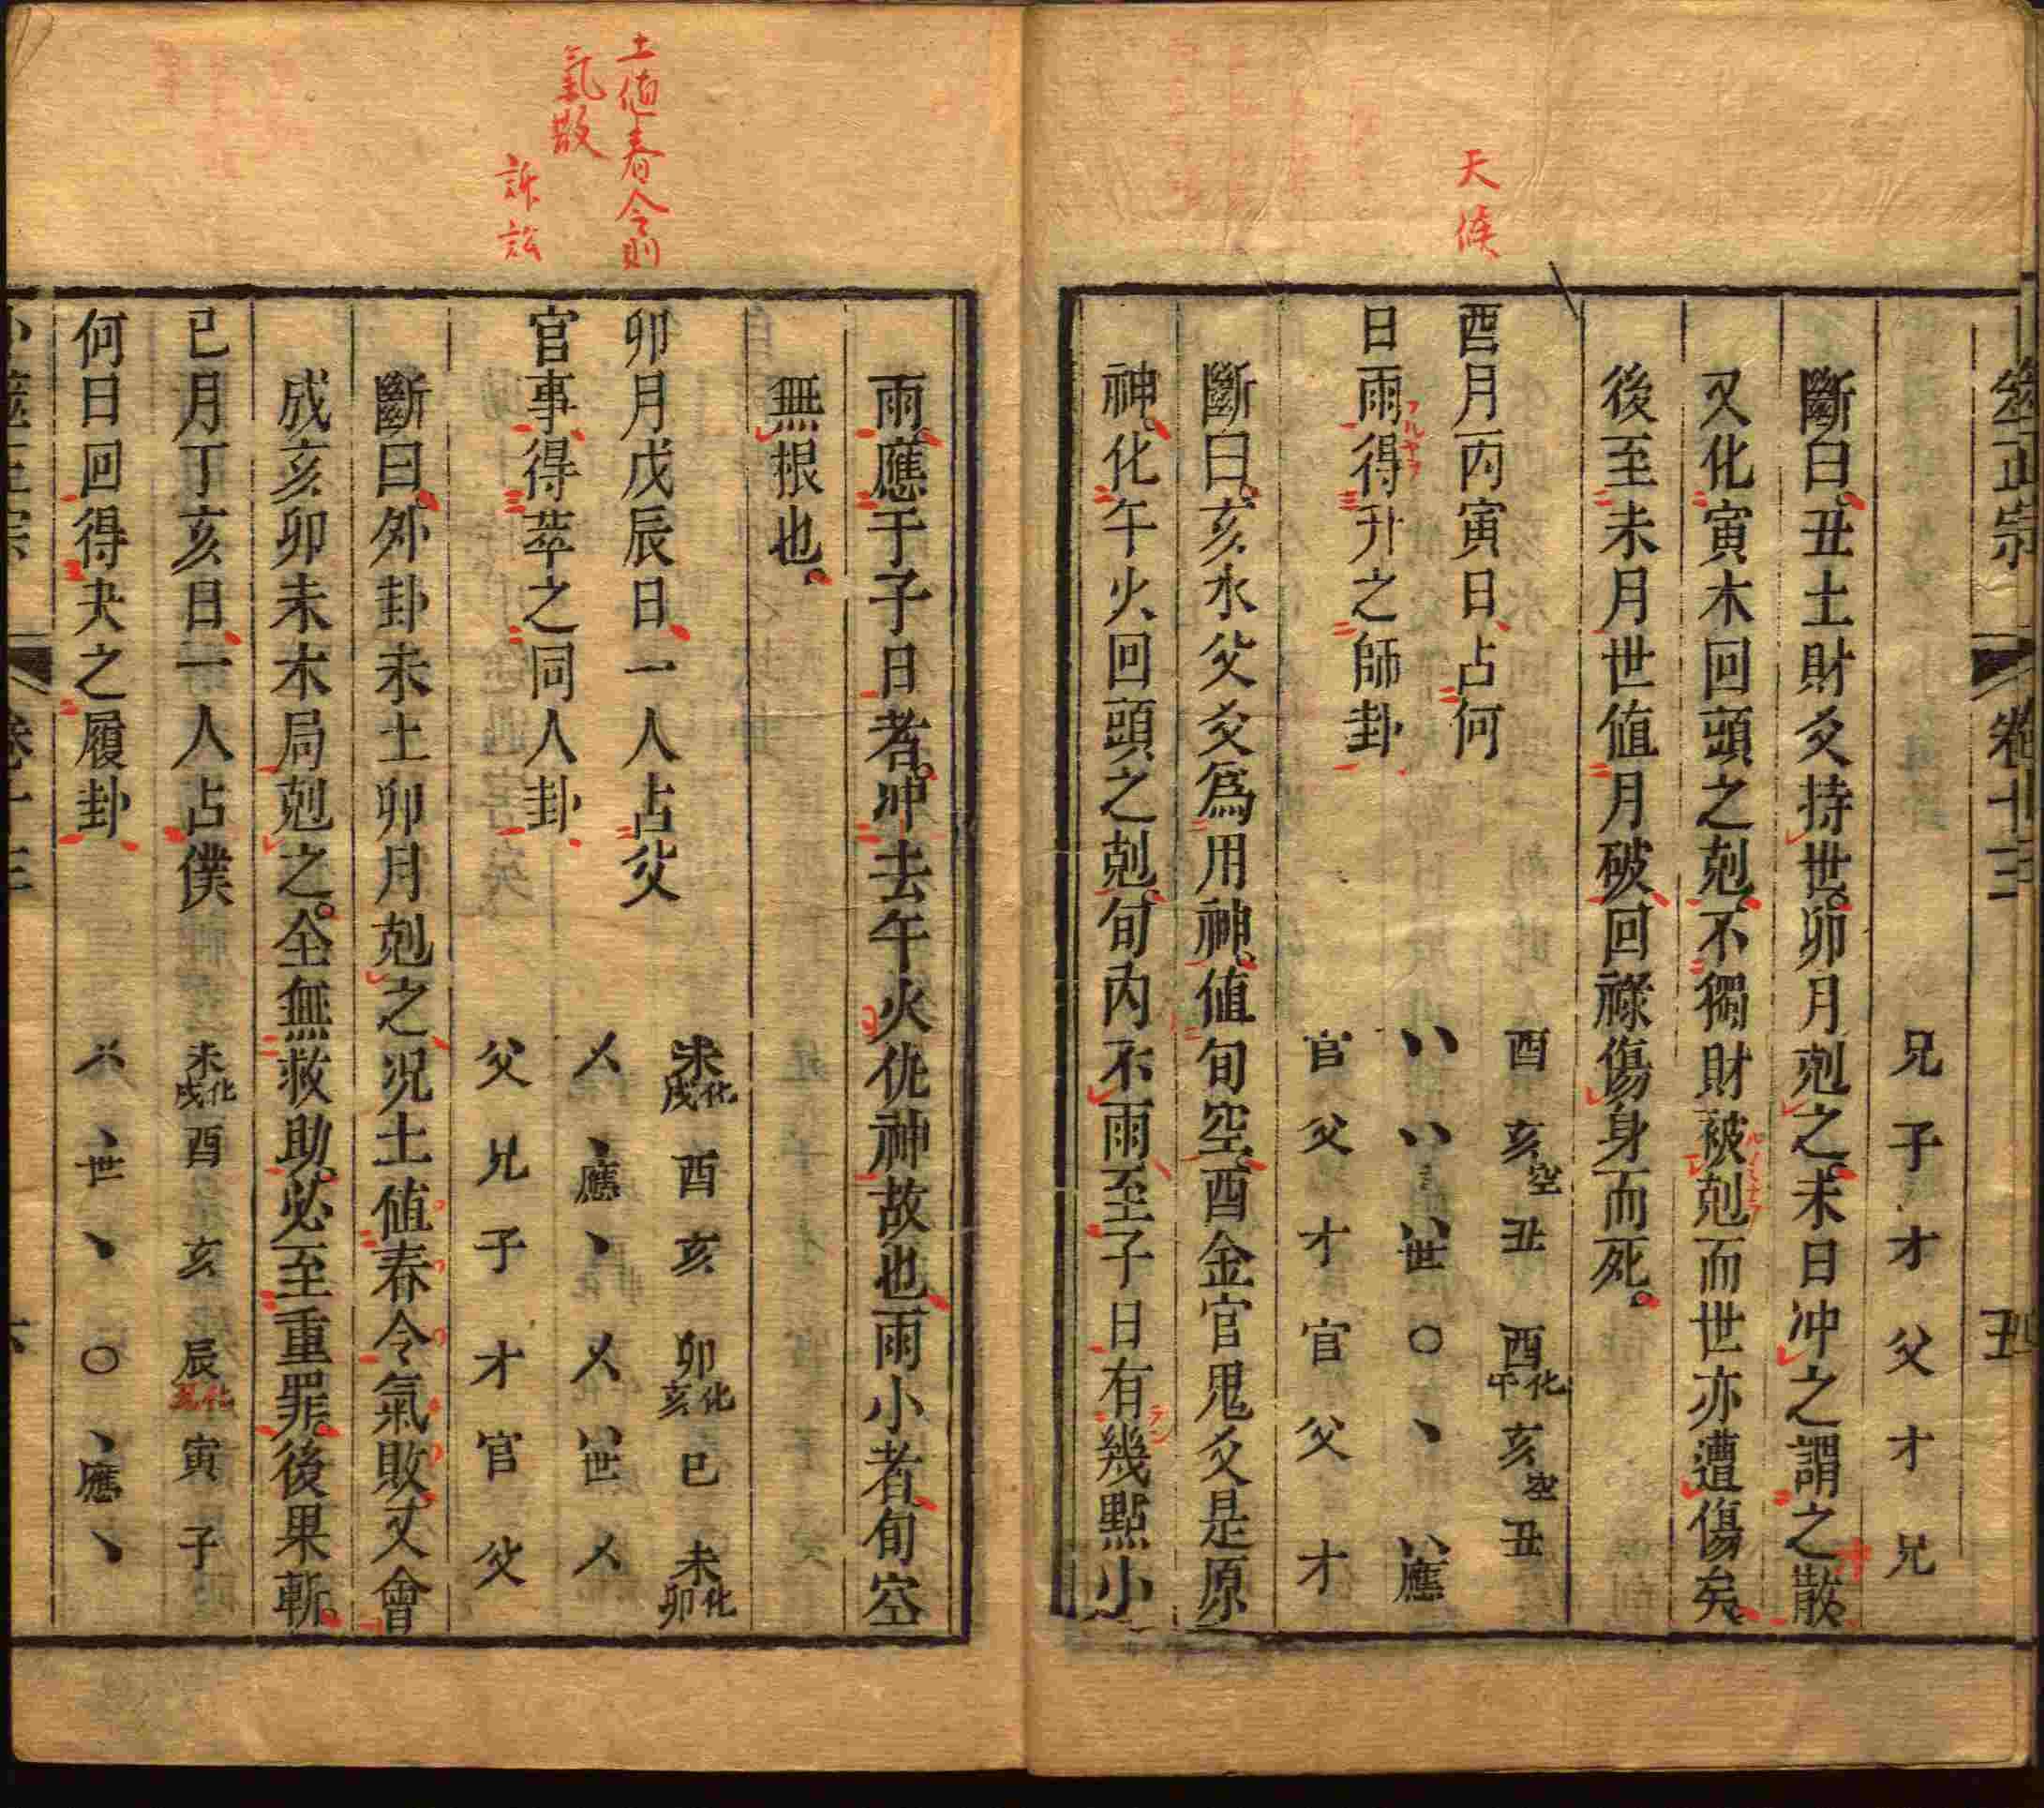 天候
兄子才父才兄
斷曰丑土財爻持世卯月剋之未日冲之謂之散
又化寅木回頭之剋不獨財被剋而世亦遭傷矣
後至未月世值月破回祿傷身而死
酉月丙寅日占何
日雨得升之師卦
酉 亥空 丑 酉化午 亥空 丑
〃 〃 〃世 ○ 丶 〃應
官父才官父才
斷曰亥水父爻爲用神值旬空酉金官鬼爻是原
神化午火回頭之剋旬內不雨至子日有幾點小
卷十三
土值春令則
氣散
訴訟
雨應于子日者冲去午火仇神故也雨小者旬空
無根也
卯月戊辰日一人占父
官事得萃之同人卦
未化戌 酉 亥 卯化亥 巳 未化卯
乂 丶應 丶 乂 〃世 乂
父兄子才官父
斷曰外卦未土卯月剋之况土值春令氣敗丈會
成亥卯未木局剋之全無救助必至重罪後果斬
巳月丁亥日一人占僕
何日回得夬之履卦
未化戌 酉 亥 辰化丑 寅 子
乂 丶世 丶 ○ 丶應 丶